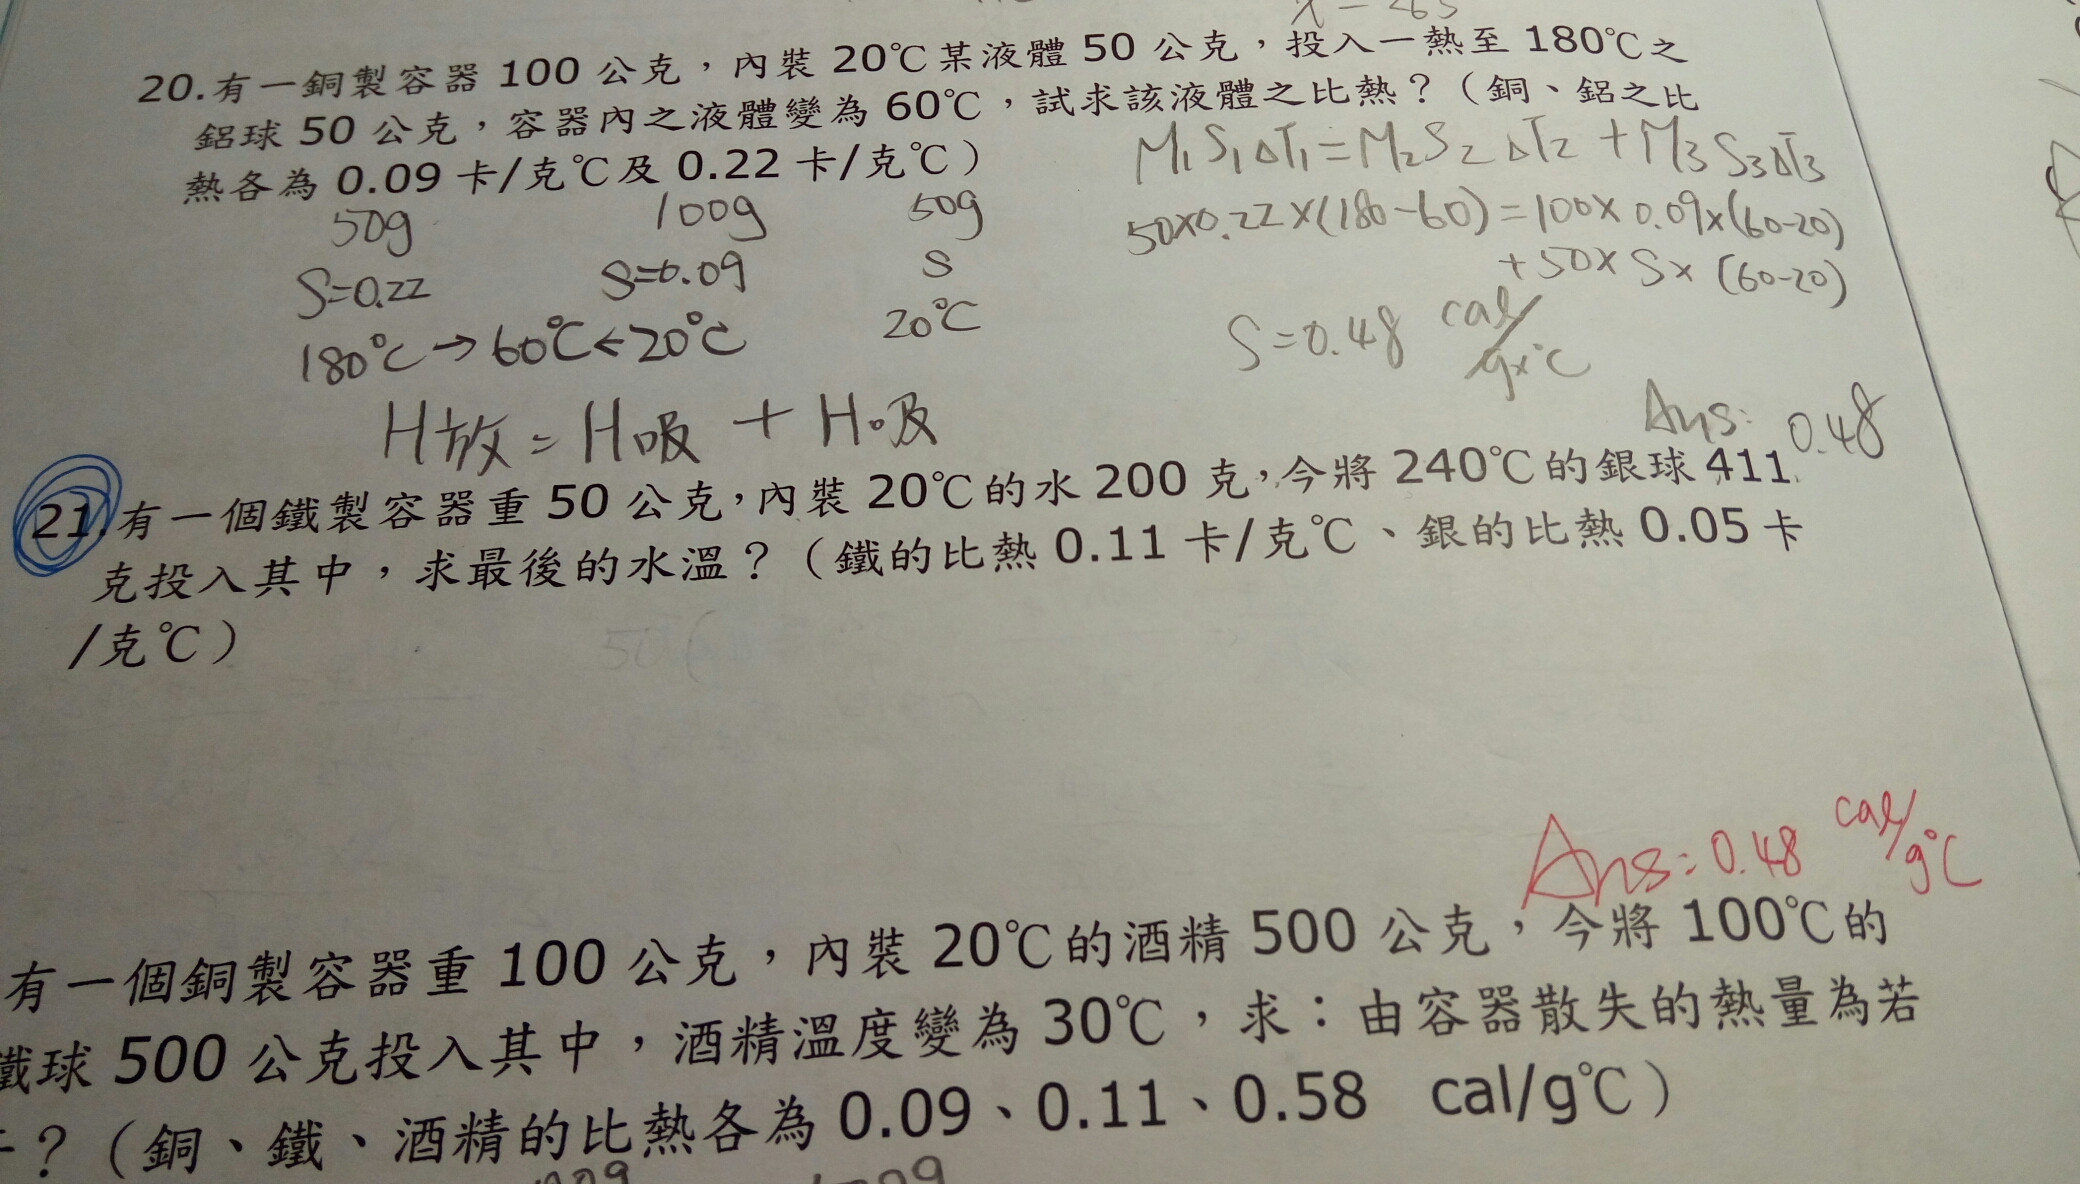 20.有一銅製容器 100 公克，內裝 20℃某液體 50 公克，投入一熱至 180℃之
鋁球 50 公克，容器內之液體變為 60℃，試求該液體之比熱？（銅、鋁之比
熱各為 0.09 卡/克℃及 0.22 卡/克℃）
M₁S₁ΔT₁=M₂S₂ΔT₂+M₃S₃ΔT₃
50g 100g 50g
50×0.22×(180-60)=100×0.09×(60-20)
S=0.22 S=0.09 S
+50×S×(60-20)
180℃→60℃←20℃ 20℃
S=0.48 cal/g×℃
H放=H吸+H吸
Ans: 0.48
21.有一個鐵製容器重 50 公克，內裝 20℃的水 200 克，今將 240℃的銀球 411
克投入其中，求最後的水溫？（鐵的比熱 0.11 卡/克℃、銀的比熱 0.05 卡
/克℃）
Ans:0.48 cal/g℃
有一個銅製容器重 100 公克，內裝 20℃的酒精 500 公克，今將 100℃的
鐵球 500 公克投入其中，酒精溫度變為 30℃，求：由容器散失的熱量為若
？（銅、鐵、酒精的比熱各為 0.09、0.11、0.58 cal/g℃）